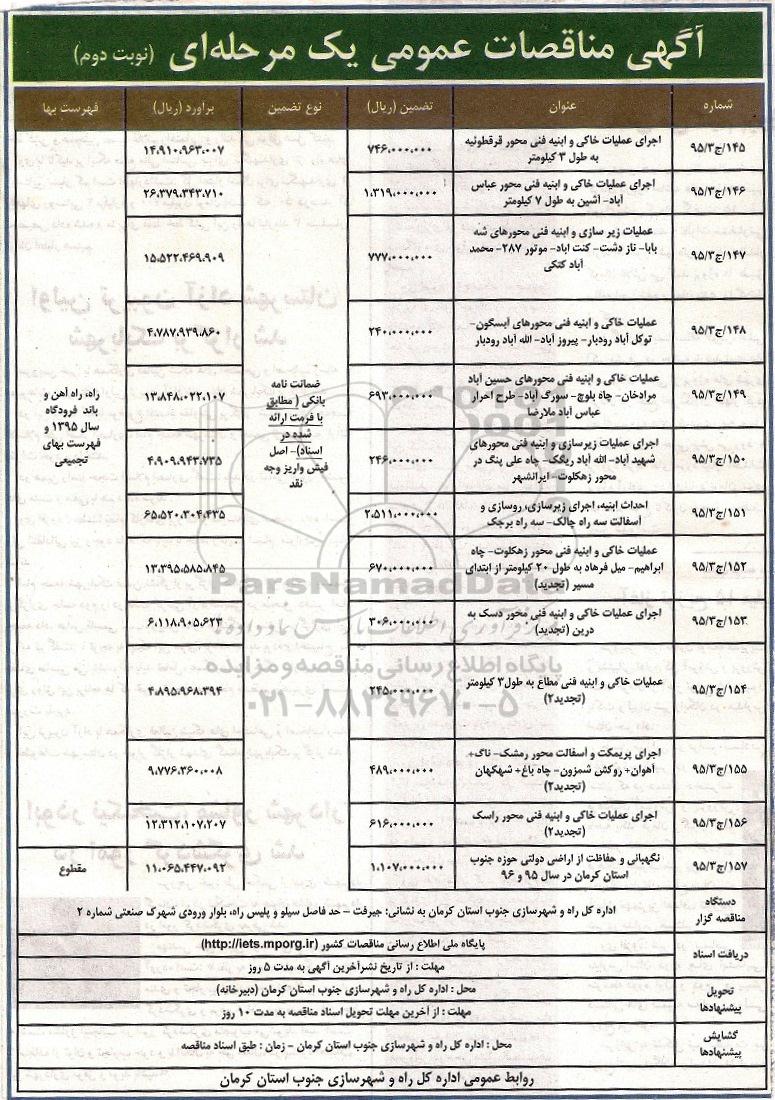 آگهی مناقصات عمومی یک مرحله‌ای (نوبت دوم)
شماره عنوان تضمین (ریال) نوع تضمین برآورد (ریال) فهرست بها
۹۵/۳/ج/۱۴۵ اجرای عملیات خاکی و ابنیه فنی محور قرقطوئیه ۷۴۶,۰۰۰,۰۰۰ ۱۴,۹۱۰,۹۶۳,۰۰۷
به طول ۳ کیلومتر
۹۵/۳/ج/۱۴۶ اجرای عملیات خاکی و ابنیه فنی محور عباس ۱,۳۱۹,۰۰۰,۰۰۰ ۲۶,۳۷۹,۳۴۳,۷۱۰
آباد- آشین به طول ۷ کیلومتر
۹۵/۳/ج/۱۴۷ عملیات زیر سازی و ابنیه فنی محورهای شه ۷۷۷,۰۰۰,۰۰۰ ۱۵,۵۲۲,۴۶۹,۹۰۹
بابا- ناز دشت- کنت اباد- موتور ۲۸۷- محمد
آباد کتکی
۹۵/۳/ج/۱۴۸ عملیات خاکی و ابنیه فنی محورهای آبسگون- ۲۴۰,۰۰۰,۰۰۰ ۴,۷۸۷,۹۳۹,۸۶۰
توکل آباد رودبار- پیروز آباد- الله آباد رودبار
۹۵/۳/ج/۱۴۹ عملیات خاکی و ابنیه فنی محورهای حسین آباد ۶۹۳,۰۰۰,۰۰۰ ۱۳,۸۴۸,۰۲۲,۱۰۷
مرادخان- چاه بلوچ- سورگ آباد- طرح احرار
عباس آباد ملارضا
ضمانت نامه
بانکی ( مطابق
با فرمت ارائه
شده در
اسناد)- اصل
فیش واریز وجه
نقد
راه، راه آهن و
باند فرودگاه
سال ۱۳۹۵ و
فهرست بهای
تجمیعی
۹۵/۳/ج/۱۵۰ اجرای عملیات زیرسازی و ابنیه فنی محورهای ۲۴۶,۰۰۰,۰۰۰ ۴,۹۰۹,۹۴۳,۷۳۵
شهید آباد- الله آباد ریگک- چاه علی پنگ در
محور زهکلوت- ایرانشهر
۹۵/۳/ج/۱۵۱ احداث ابنیه، اجرای زیرسازی، روسازی و ۲,۵۱۱,۰۰۰,۰۰۰ ۶۵,۵۲۰,۳۰۴,۴۳۵
آسفالت سه راه چالک- سه راه برجک
۹۵/۳/ج/۱۵۲ عملیات خاکی و ابنیه فنی محور زهکلوت- چاه ۶۷۰,۰۰۰,۰۰۰ ۱۳,۳۹۵,۵۸۵,۸۴۵
ابراهیم- میل فرهاد به طول ۲۰ کیلومتر از ابتدای
مسیر (تجدید)
۹۵/۳/ج/۱۵۳ اجرای عملیات خاکی و ابنیه فنی محور دسک به ۳۰۶,۰۰۰,۰۰۰ ۶,۱۱۸,۹۰۵,۶۲۳
درین (تجدید)
۹۵/۳/ج/۱۵۴ عملیات خاکی و ابنیه فنی مطاع به طول۳ کیلومتر ۲۴۵,۰۰۰,۰۰۰ ۴,۸۹۵,۹۶۸,۳۹۴
(تجدید۲)
۹۵/۳/ج/۱۵۵ اجرای پریمکت و آسفالت محور رمشک- ناگ+ ۴۸۹,۰۰۰,۰۰۰ ۹,۷۷۶,۳۶۰,۰۰۸
آهوان+ روکش شمزون- چاه باغ+ شهکهان
(تجدید۲)
۹۵/۳/ج/۱۵۶ اجرای عملیات خاکی و ابنیه فنی محور راسک ۶۱۶,۰۰۰,۰۰۰ ۱۲,۳۱۲,۱۰۷,۲۰۷
(تجدید۲)
۹۵/۳/ج/۱۵۷ نگهبانی و حفاظت از اراضی دولتی حوزه جنوب ۱,۱۰۷,۰۰۰,۰۰۰ ۱۱,۰۶۵,۴۴۷,۰۹۲ مقطوع
استان کرمان در سال ۹۵ و ۹۶
دستگاه
مناقصه گزار
اداره کل راه و شهرسازی جنوب استان کرمان به نشانی: جیرفت - حد فاصل سیلو و پلیس راه، بلوار ورودی شهرک صنعتی شماره ۲
دریافت اسناد
پایگاه ملی اطلاع رسانی مناقصات کشور (http://iets.mporg.ir)
مهلت : از تاریخ نشرآخرین آگهی به مدت ۵ روز
تحویل
پیشنهادها
محل : اداره کل راه و شهرسازی جنوب استان کرمان (دبیرخانه)
مهلت : از آخرین مهلت تحویل اسناد مناقصه به مدت ۱۰ روز
گشایش
پیشنهادها
محل : اداره کل راه و شهرسازی جنوب استان کرمان - زمان : طبق اسناد مناقصه
روابط عمومی اداره کل راه و شهرسازی جنوب استان کرمان
ParsNamadData
پایگاه اطلاع رسانی مناقصه و مزایده
۰۲۱-۸۸۳۴۹۶۷۰-۵